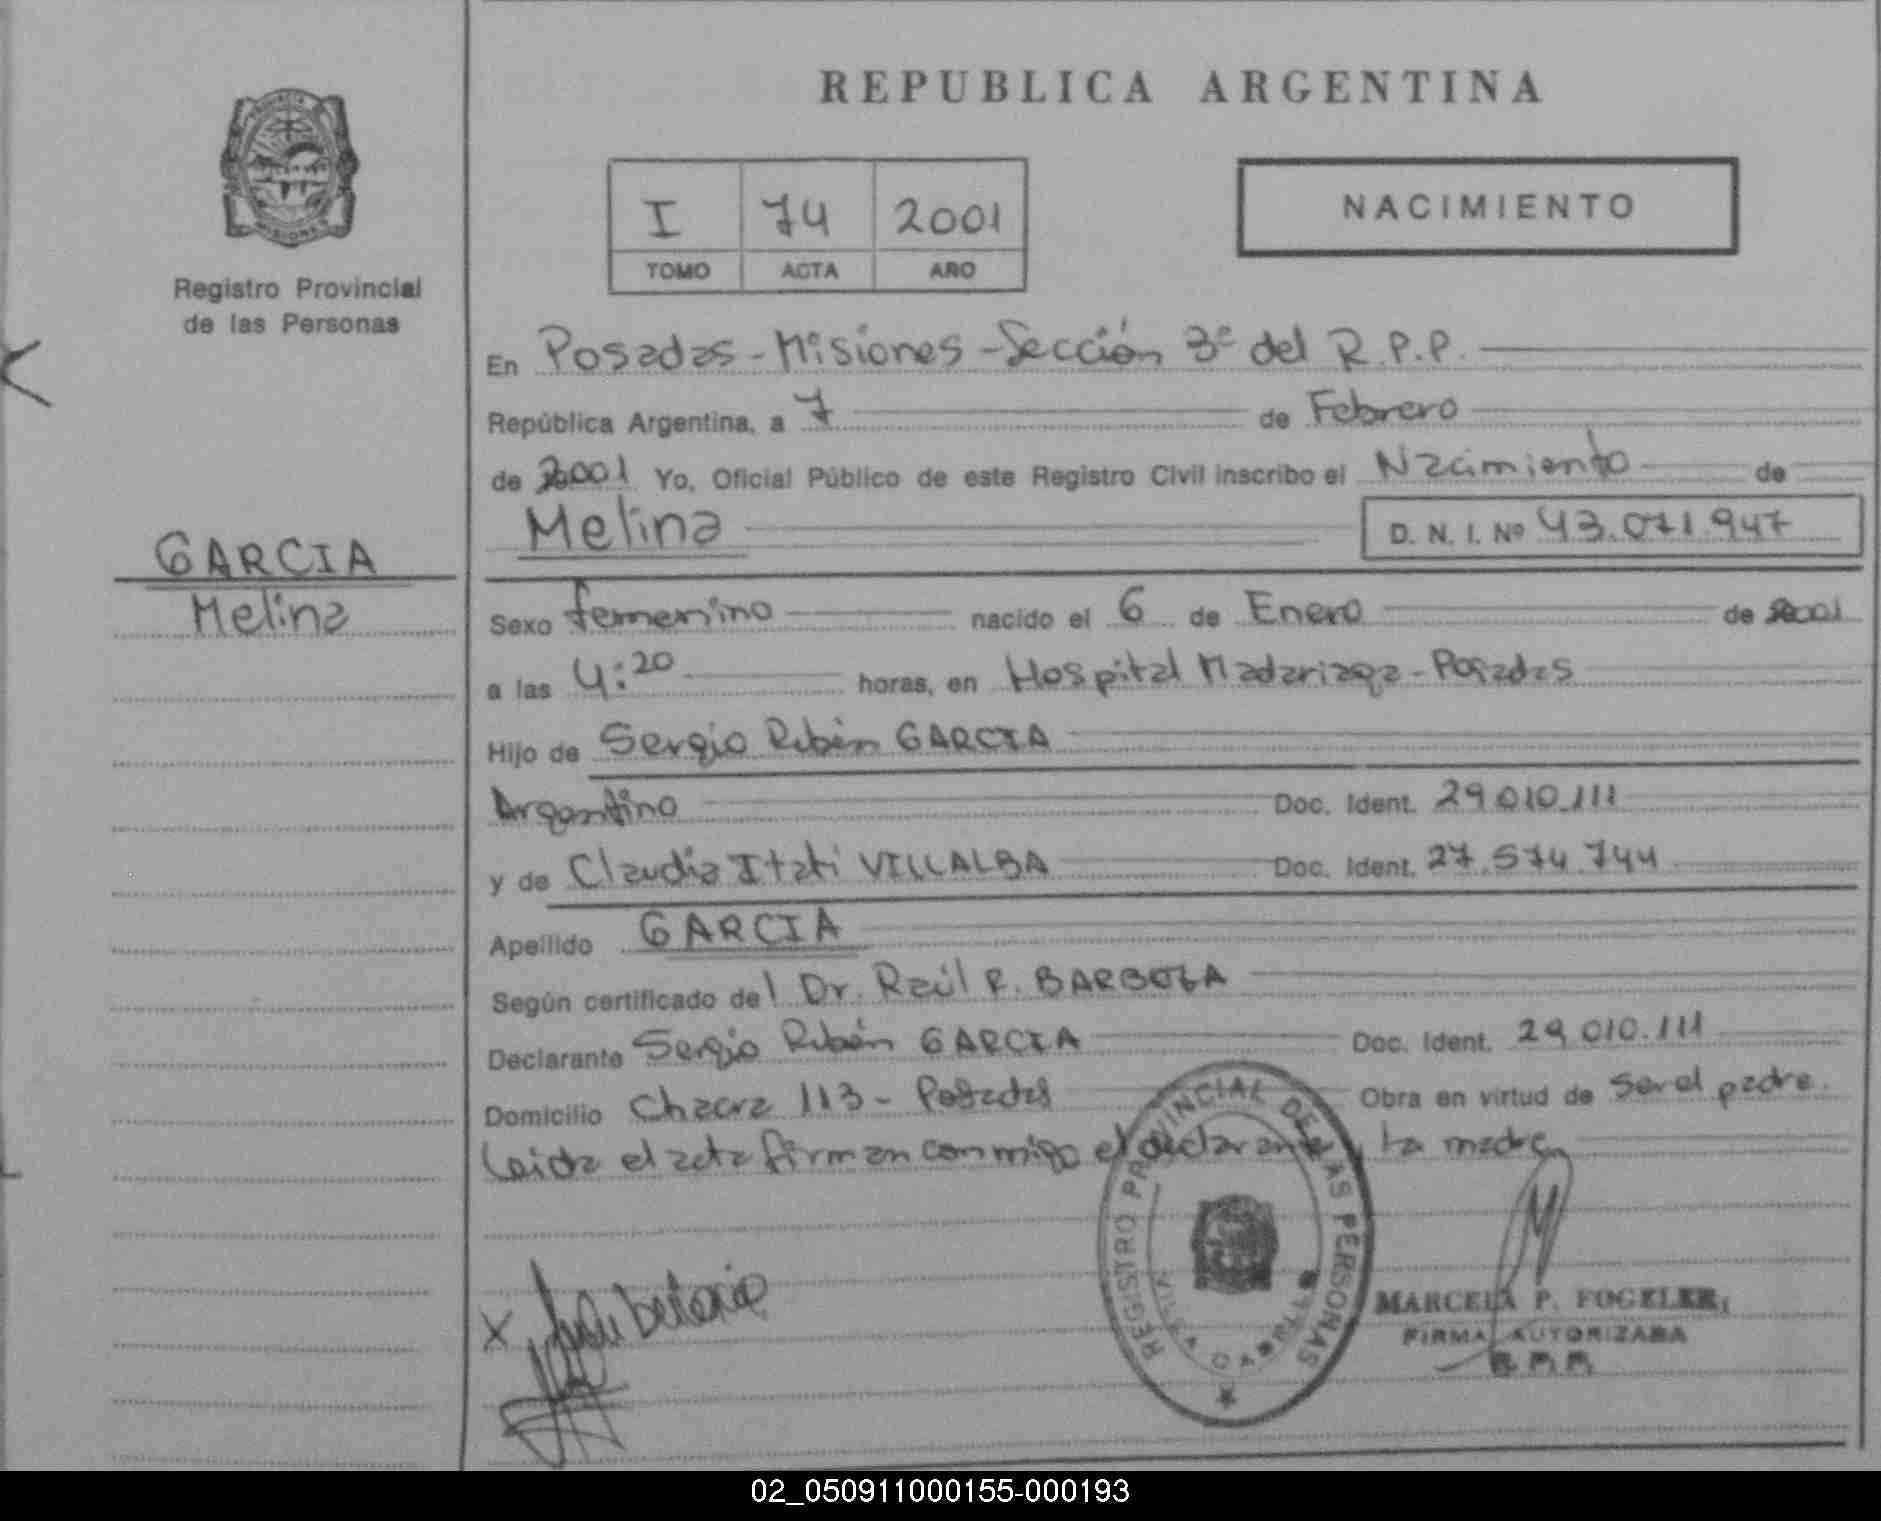 REPUBLICA ARGENTINA
I 74 2001
TOMO ACTA AÑO
NACIMIENTO
Registro Provincial
de las Personas
En Posadas - Misiones - Sección 3º del R.P.P.
República Argentina, a 7 de Febrero
de 2001 Yo, Oficial Público de este Registro Civil inscribo el Nacimiento de
Melina D. N. I. Nº 43.071.947
GARCIA
Melina
Sexo femenino nacido el 6 de Enero de 2001
a las 4:20 horas, en Hospital Madariaga - Posadas
Hijo de Sergio Rubén GARCIA
Argentino Doc. Ident. 29.010.111
y de Claudia Itati VILLALBA Doc. Ident. 27.574.744
Apellido GARCIA
Según certificado del Dr. Raúl R. BARBOZA
Declarante Sergio Rubén GARCIA Doc. Ident. 29.010.111
Domicilio Chacra 113 - Posadas Obra en virtud de ser el padre.
Leida el acta firman conmigo el declarante y la madre
REGISTRO PROVINCIAL DE LAS PERSONAS
X
MARCELA P. FOGELER
FIRMA AUTORIZADA
R.P.P.
02_050911000155-000193